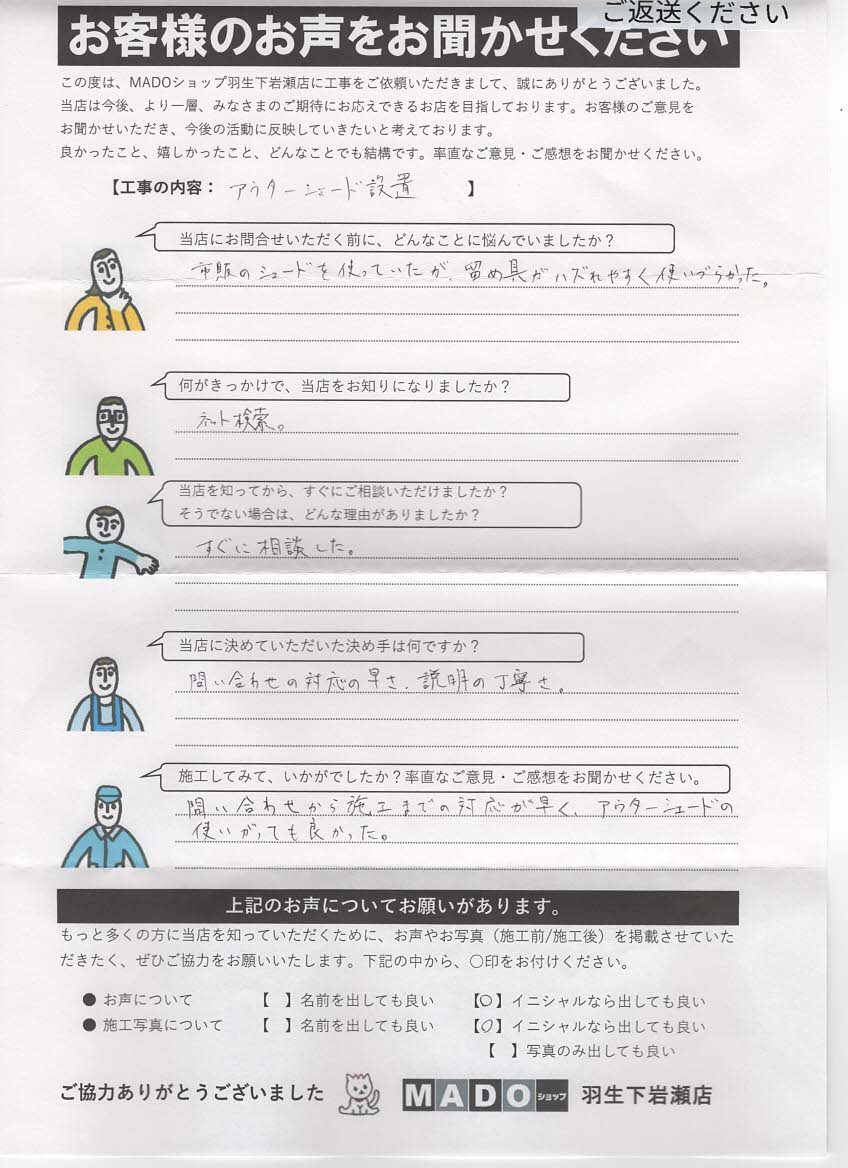 ご返送ください
お客様のお声をお聞かせください
この度は、MADOショップ羽生下岩瀬店に工事をご依頼いただきまして、誠にありがとうございました。
当店は今後、より一層、みなさまのご期待にお応えできるお店を目指しております。お客様のご意見を
お聞かせいただき、今後の活動に反映していきたいと考えております。
良かったこと、嬉しかったこと、どんなことでも結構です。率直なご意見・ご感想をお聞かせください。
【工事の内容： アウターシェード設置 】
当店にお問合せいただく前に、どんなことに悩んでいましたか？
市販のシェードを使っていたが、留め具がハズれやすく使いづらかった。
何がきっかけで、当店をお知りになりましたか？
ネット検索。
当店を知ってから、すぐにご相談いただけましたか？
そうでない場合は、どんな理由がありましたか？
すぐに相談した。
当店に決めていただいた決め手は何ですか？
問い合わせの対応の早さ、説明の丁寧さ。
施工してみて、いかがでしたか？率直なご意見・ご感想をお聞かせください。
問い合わせから施工までの対応が早く、アウターシェードの
使いがっても良かった。
上記のお声についてお願いがあります。
もっと多くの方に当店を知っていただくために、お声やお写真（施工前/施工後）を掲載させていた
だきたく、ぜひご協力をお願いいたします。下記の中から、〇印をお付けください。
● お声について 【 】名前を出しても良い 【〇】イニシャルなら出しても良い
● 施工写真について 【 】名前を出しても良い 【〇】イニシャルなら出しても良い
【 】写真のみ出しても良い
ご協力ありがとうございました MADOショップ 羽生下岩瀬店